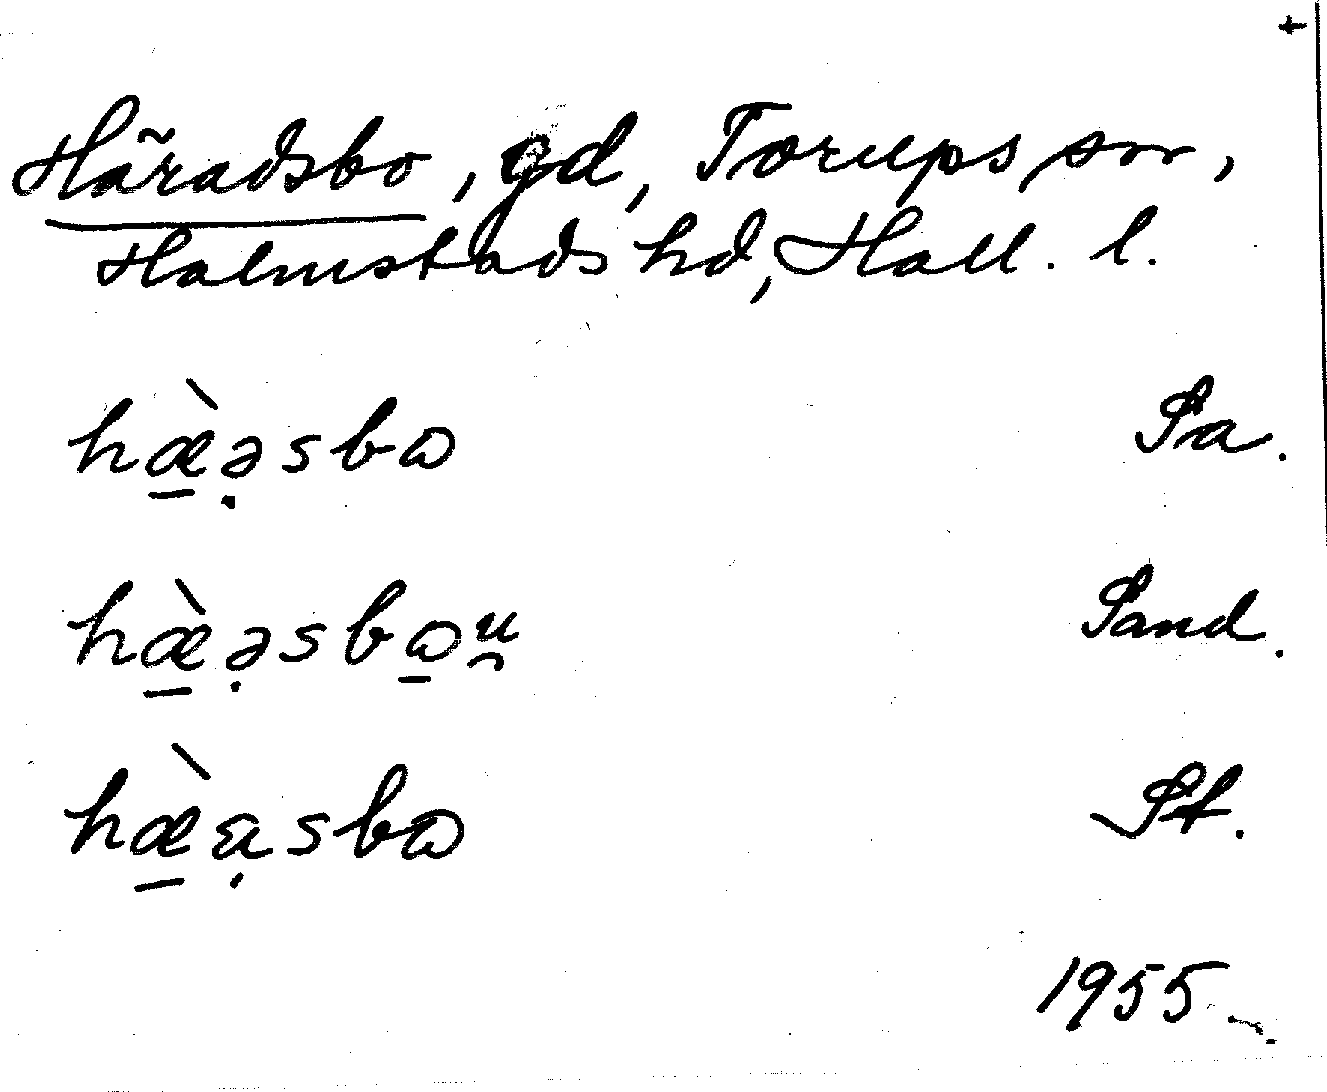 +
Häradsbo, gd, Torups sn,
Halmstads hd, Hall. l.
hæ̱̀ə̣sbɷ Sa.
hæ̱̀ə̣sbɷ̱u̯ Sand.
hæ̱̀ạsbɷ St.
1955.